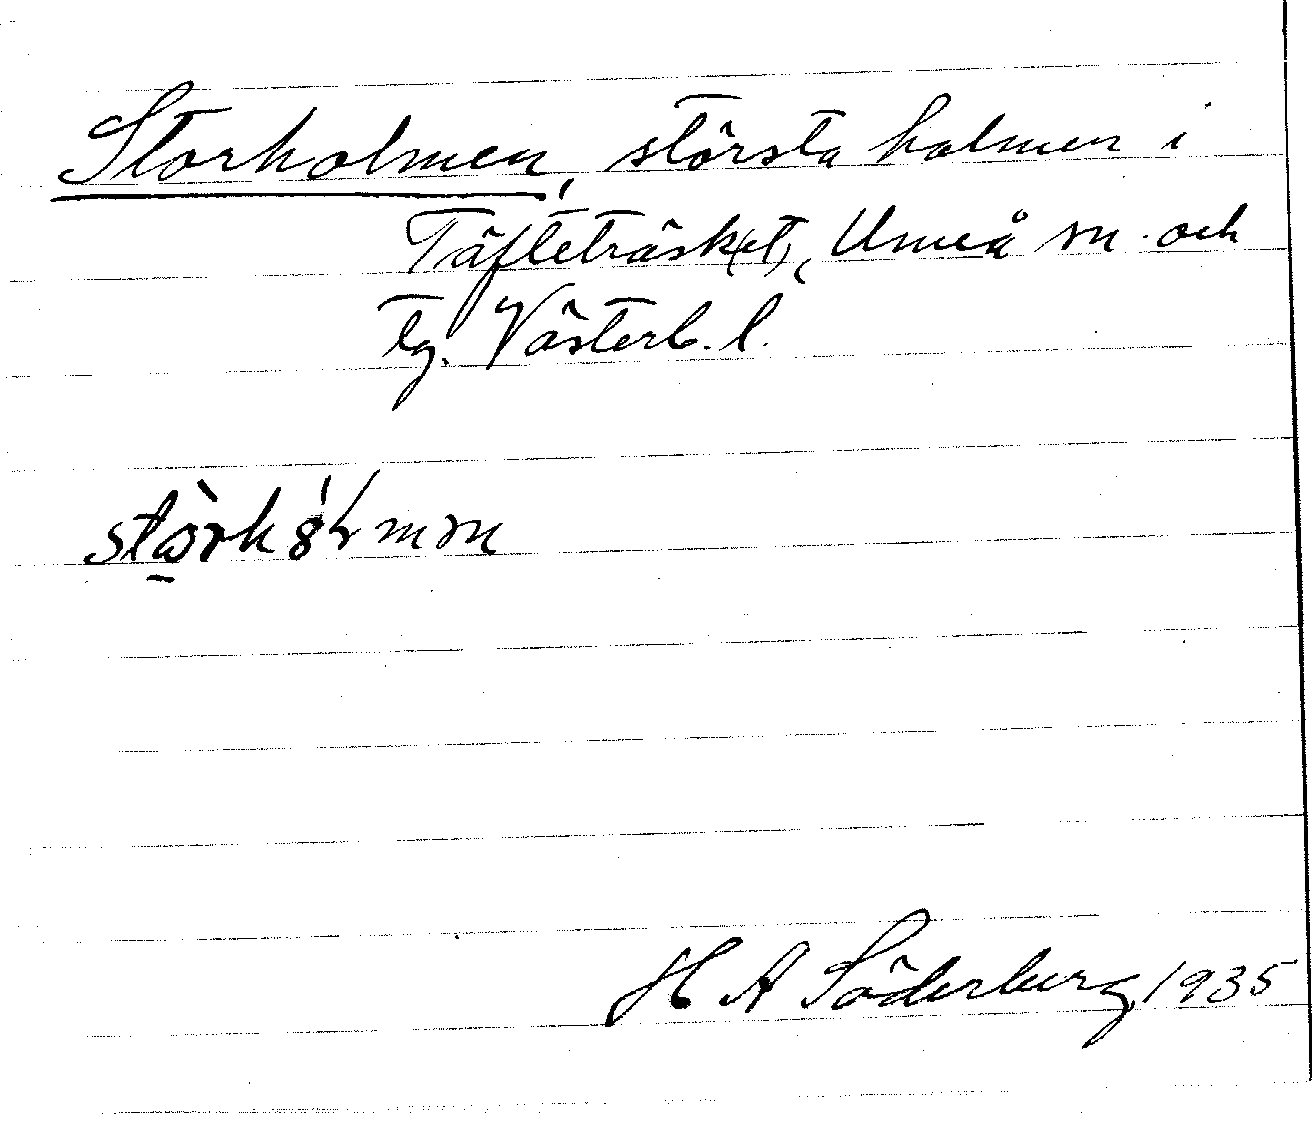 Storholmen, största holmen i
Täfteträsk(et), Umeå sn och
tg. Västerb. l.
H A Söderberg 1935